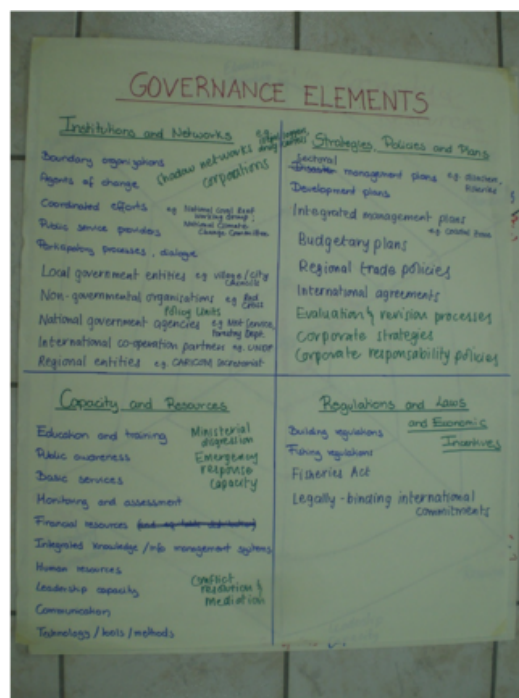 GOVERNANCE ELEMENTS
Institutions and Networks
Boundary organizations
Agents of change
Shadow networks
corporations
Coordinated efforts e.g. National Coral Reef
Working Group;
National Climate
Change Committee
Public service providers
Participatory processes, dialogue
Local government entities e.g. village/City
Councils
Non-governmental organisations e.g. Red
Cross
Policy Units
National government agencies e.g. Met Service,
Forestry Dept.
International co-operation partners e.g. UNDP
Regional entities e.g. CARICOM Secretariat
Strategies, Policies and Plans
Sectoral
management plans e.g.
fisheries
Development plans
Integrated management plans
e.g. Coastal Zone
Budgetary plans
Regional trade policies
International agreements
Evaluation & revision processes
Corporate strategies
Corporate responsability policies
Capacity and Resources
Education and training
Public awareness
Basic services
Monitoring and assessment
Financial resources
Integrated knowledge/info management systems
Human resources
Leadership capacity
Communication
Technology/tools/methods
Ministerial
Emergency
response
capacity
Conflict
resolution &
mediation
Regulations and Laws
and Economic
Incentives
Building regulations
Fishing regulations
Fisheries Act
Legally-binding international
commitments